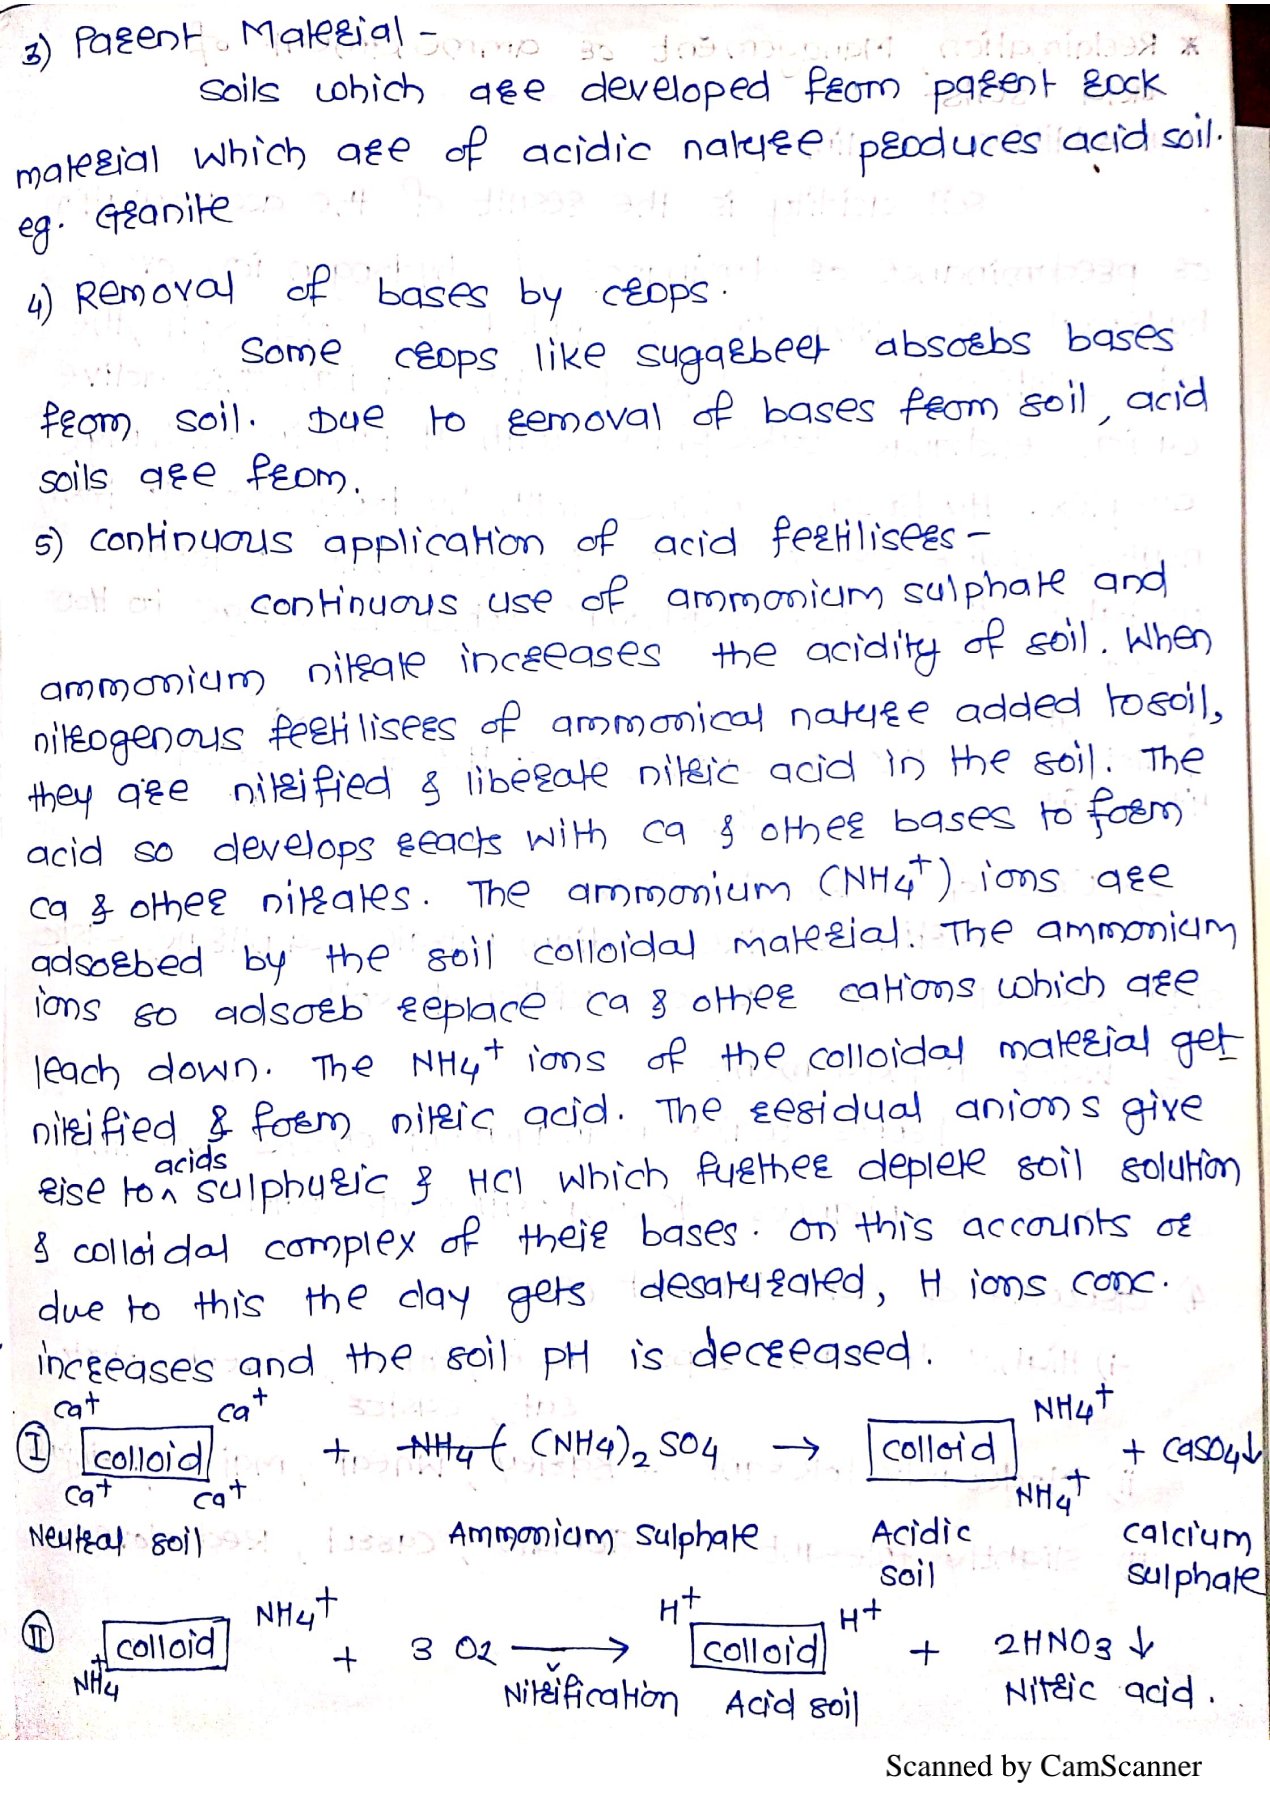 3) Parent Material -
Soils which are developed from parent rock
material which are of acidic nature produces acid soil.
eg. Granite
4) Removal of bases by crops.
Some crops like sugarbeet absorbs bases
from soil. Due to removal of bases from soil, acid
soils are from.
5) continuous application of acid fertilisers -
continuous use of ammonium sulphate and
ammonium nitrate increases the acidity of soil. When
nitrogenous fertilisers of ammonical nature added to soil,
they are nitrified & liberate nitric acid in the soil. The
acid so develops reacts with ca & other bases to form
ca & other nitrates. The ammonium (NH4+) ions are
adsorbed by the soil colloidal material. The ammonium
ions so adsorb replace ca & other cations which are
leach down. The NH4+ ions of the colloidal material get
nitrified & form nitric acid. The residual anions give
rise to ^ acids sulphuric & HCl which further deplete soil solution
& colloidal complex of their bases. on this accounts or
due to this the clay gets desaturated, H ions conc.
increases and the soil pH is decreased.
Ca+ Ca+ NH4+
I colloid + NH4( (NH4)2 SO4 → colloid + CaSO4↓
Ca+ Ca+ NH4+
Neutral soil Ammonium sulphate Acidic soil calcium sulphate
NH4+ H+ H+
II colloid + 3 O2 → colloid + 2HNO3 ↓
NH4+ Nitrification Acid soil Nitric acid.
Scanned by CamScanner